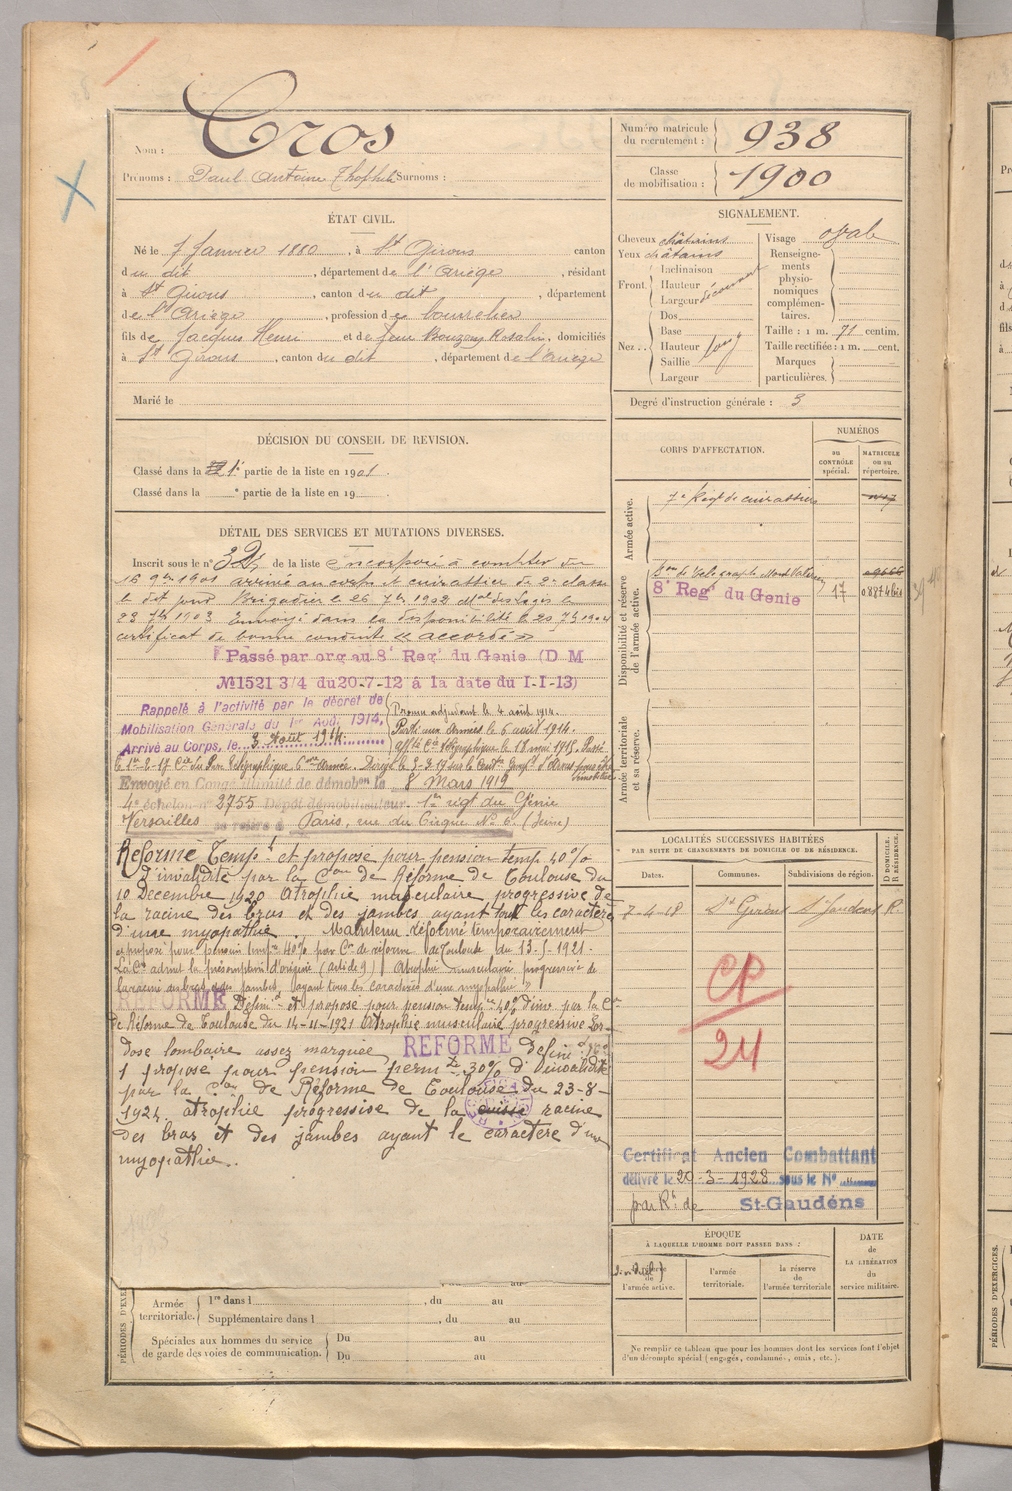 Nom : Cros
Prénoms : Paul Antoine Théophile Surnoms :
Numéro matricule du recrutement : 938
Classe de mobilisation : 1900
ÉTAT CIVIL.
Né le 7 Janvier 1880, à St Girons canton
du dit, département de l'Ariège, résidant
à St Girons, canton du dit, département
de l'Ariège, profession de bourrelier
fils de Jacques Henri et de feue Bouzens Rosalie, domiciliés
à St Girons, canton du dit, département de l'Ariège
Marié le
SIGNALEMENT.
Cheveux châtains
Yeux châtains
Front
Inclinaison
Hauteur
Largeur découvert
Nez
Dos
Base
Hauteur long
Saillie
Largeur
Visage ovale
Renseignements physionomiques complémentaires.
Taille : 1 m. 71 centim.
Taille rectifiée : 1 m. cent.
Marques particulières.
Degré d'instruction générale : 3
DÉCISION DU CONSEIL DE REVISION.
Classé dans la 1e partie de la liste en 1901.
Classé dans la e partie de la liste en 19
DÉTAIL DES SERVICES ET MUTATIONS DIVERSES.
Inscrit sous le n° 32 de la liste Incorporé à compter du
16 9bre 1901 arrivé au corps et cuirassier de 2e classe
le dit jour Brigadier le 26 7bre 1902 Mal des Logis le
23 7bre 1903 Envoyé dans la disponibilité le 20 7bre 1904
certificat de bonne conduite « accordé »
Passé par org au 8e Regt du Genie (D M
N° 1521 3/4 du 20-7-12 à la date du 1-1-13)
Rappelé à l'activité par le décret de
Mobilisation Générale du 1er Août 1914,
Arrivé au Corps, le 3 Août 1914.
Promu adjudant le 4 août 1914.
Parti aux Armées le 6 août 1914.
affté Cie télégraphique le 18 mai 1915. Passé
le 1er 2-17 Cie du Parc Télégraphique 6me Armée.
Envoyé en Congé illimité de démobon le 8 Mars 1919
4e échelon n° 2755 Dépôt démobilisateur 1er régt du Génie
Versailles se retire à Paris, rue du Cirque N° 6. (Seine)
Réformé Tempt et proposé pour pension temp 40%
d'invalidité par la Con de Réforme de Toulouse du
10 Décembre 1920 Atrophie musculaire progressive de
la racine des bras et des jambes ayant tout les caractères
d'une myopathie. Maintenu réformé temporairement
et proposé pour pension tempre 40% par Con de réforme de Toulouse du 13-5-1921.
La Con admet la présomption d'origine (article 9) Atrophie musculaire progressive de
la racine des bras et des jambes, ayant tous les caractères d'une myopathie »
RÉFORMÉ Définitt et proposé pour pension tempre 40% d'inv. par la Con
de Réforme de Toulouse du 14-11-1921 Atrophie musculaire progressive Lor-
dose lombaire assez marquée REFORMÉ défini
proposé pour pension permte 30% d'invalidité
par la Con de Réforme de Toulouse du 23-8-
1924. atrophie progressive de la cuisse racine
des bras et des jambes ayant le caractère d'une
myopathie..
CORPS D'AFFECTATION.
NUMÉROS
au CONTRÔLE spécial.
MATRICULE ou au répertoire.
Armée active.
7e Régt de cuirassiers
Disponibilité et réserve de l'armée active.
Son de Télégraphie Mont Valérien
8e Regt du Genie 17
Armée territoriale et sa réserve.
LOCALITÉS SUCCESSIVES HABITÉES
PAR SUITE DE CHANGEMENTS DE DOMICILE OU DE RÉSIDENCE.
Dates. Communes. Subdivisions de région. D DOMICILE. R RÉSIDENCE.
7-4-18 St Girons St Gaudens R.
CP
24
Certificat Ancien Combattant
délivré le 20-3-1928 sous le N°
par Rt de St-Gaudéns
ÉPOQUE
À LAQUELLE L'HOMME DOIT PASSER DANS :
l'armée active.
l'armée territoriale.
la réserve de l'armée territoriale
DATE de LA LIBÉRATION du service militaire.
Ne remplir ce tableau que pour les hommes dont les services font l'objet
d'un décompte spécial (engagés, condamnés, omis, etc.).
Armée territoriale.
1re dans l , du au
Supplémentaire dans l , du au
Spéciales aux hommes du service
de garde des voies de communication.
Du au
Du au
PÉRIODES D'EXERCICES.